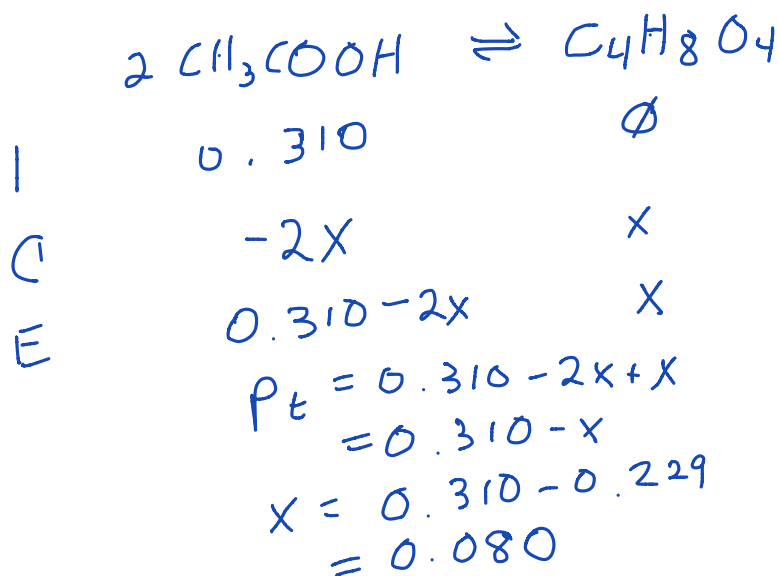 2 CH₃COOH ⇌ C₄H₈O₄
I 0.310 Ø
C -2x x
E 0.310-2x x
Pt = 0.310-2x+x
=0.310-x
x = 0.310-0.229
= 0.080